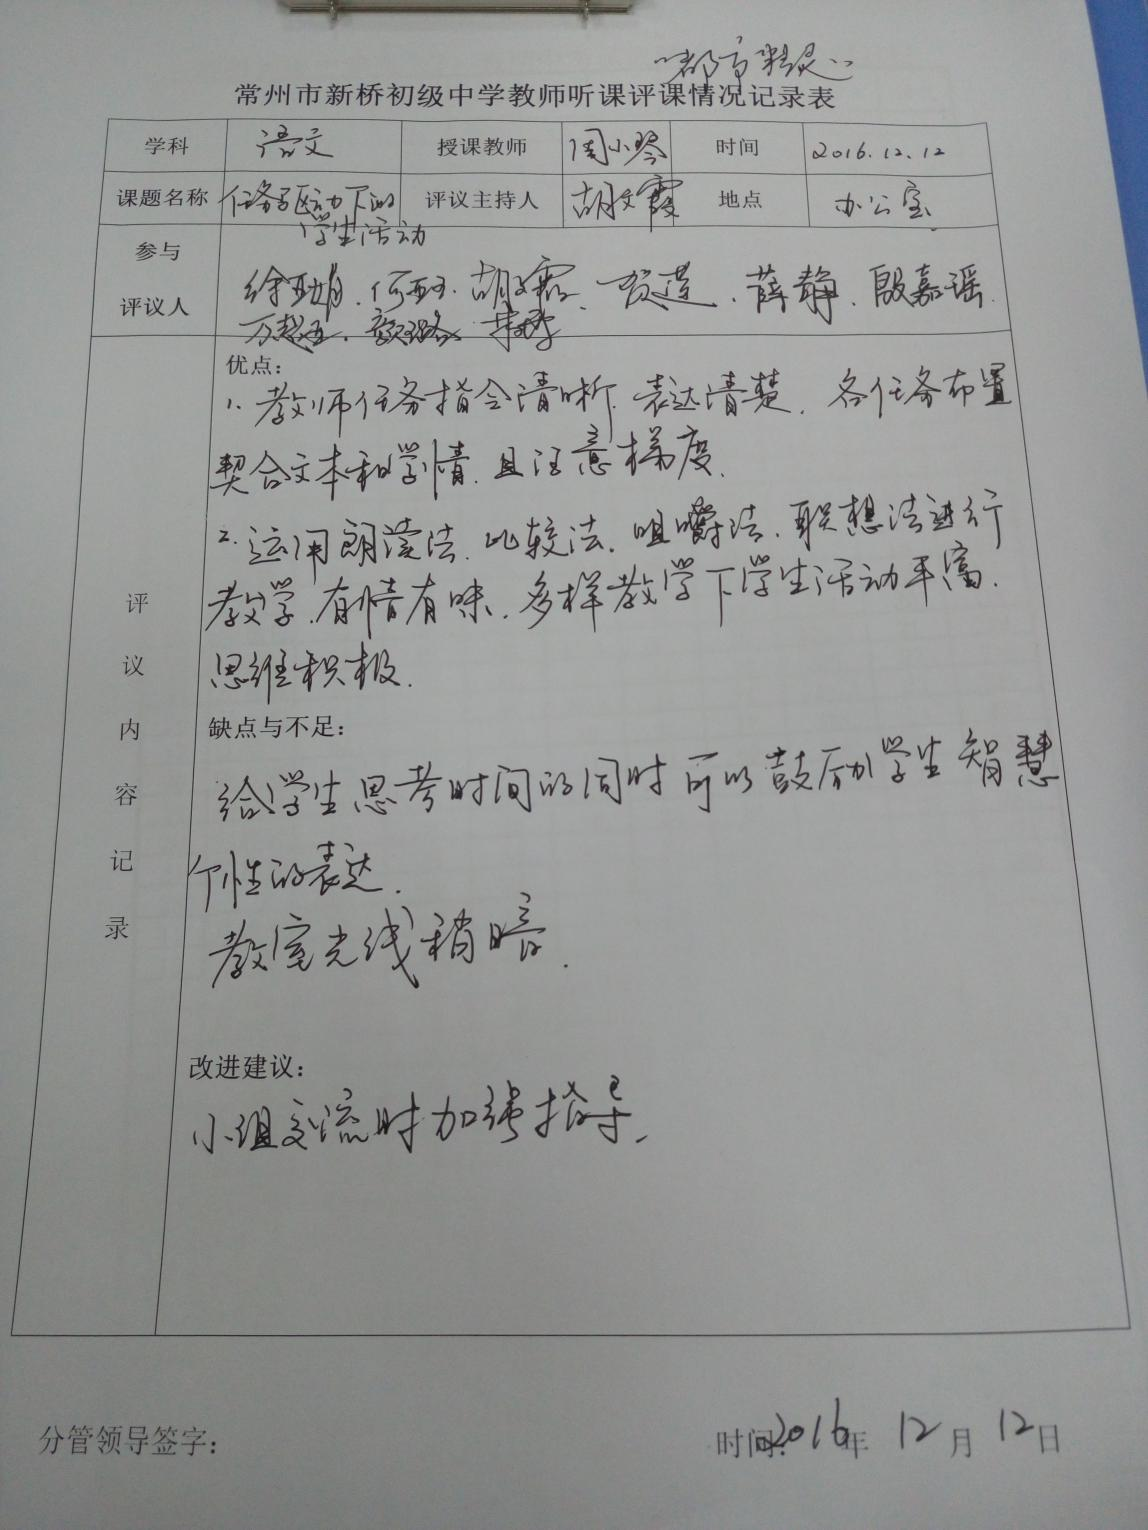 “都市精灵”
常州市新桥初级中学教师听课评课情况记录表
学科 语文 授课教师 周小琴 时间 2016.12.12
课题名称 任务驱动下的 评议主持人 胡文霞 地点 办公室
学生活动
参与
评议人
徐亚娟、何亚玉、胡文霞、贺莲、薛静、殷嘉谣
评议内容记录
优点：
1. 教师任务指令清晰，表达清楚，各任务布置
契合文本和学情，且注意梯度。
2. 运用朗读法、比较法、咀嚼法、联想法进行
教学，有情有味，多样教学下学生活动丰富，
思维积极。
缺点与不足：
给学生思考时间的同时可以鼓励学生智慧
个性的表达。
教室光线稍暗。
改进建议：
小组交流时加强指导。
分管领导签字： 时间：2016年 12月 12日